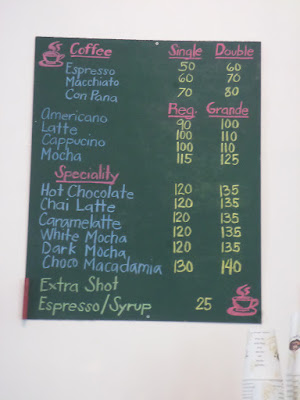 Coffee Single Double
Espresso 50 60
Macchiato 60 70
Con Pana 70 80
Reg. Grande
Americano 90 100
Latte 100 110
Cappucino 100 110
Mocha 115 125
Speciality
Hot Chocolate 120 135
Chai Latte 120 135
Caramelatte 120 135
White Mocha 120 135
Dark Mocha 120 135
Choco Macadamia 130 140
Extra Shot
Espresso/Syrup 25